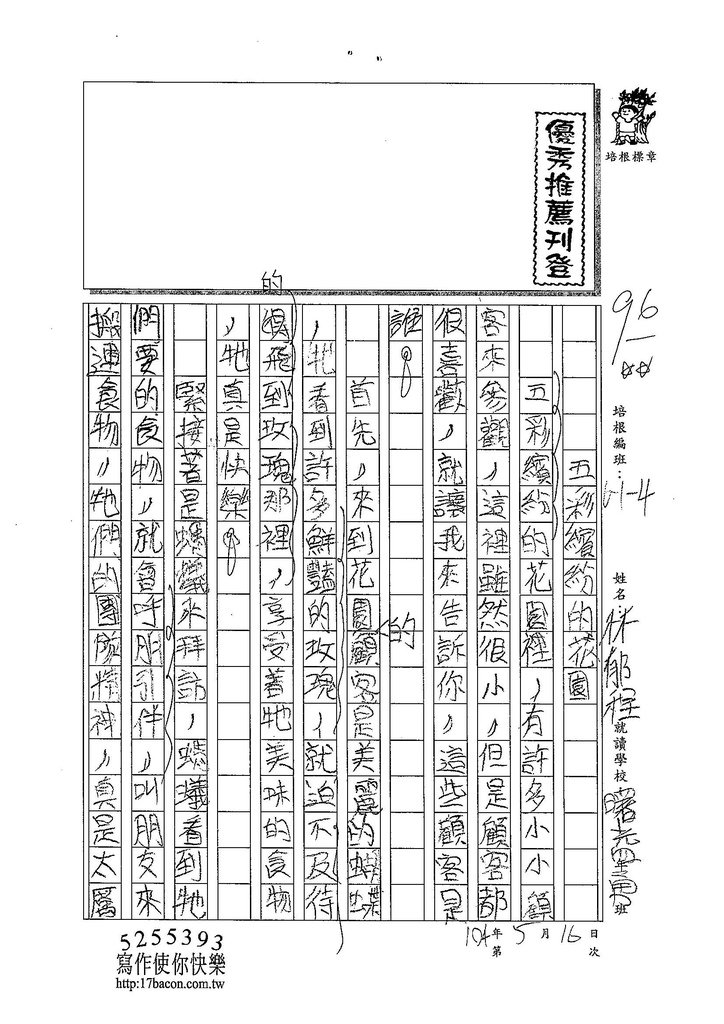 優秀推薦刊登
培根標章
96
培根編班：
姓名：林郁程
就讀學校
班
五彩繽紛的花園
五彩繽紛的花園裡，有許多小小顧
客來參觀，這裡雖然很小，但是顧客都
很喜歡，就讓我來告訴你，這些顧客是
誰。
首先，來到花園的顧客是美麗的蝴蝶
，牠看到許多鮮豔的玫瑰，就迫不及待
的飛到玫瑰那裡，享受著牠美味的食物
，牠真是快樂。
緊接著是螞蟻來拜訪，螞蟻看到牠
們要的食物，就會呼朋引伴，叫朋友來
搬運食物，牠們的團隊精神，真是太厲
104年5月16日
第
次
5255393
寫作使你快樂
http:17bacon.com.tw